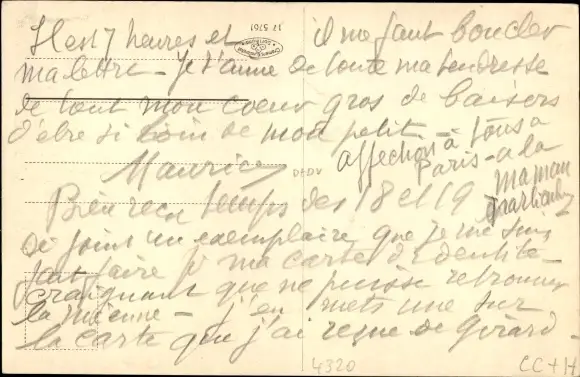 Il est 7 heures et il me faut boucler
ma lettre - Je t'aime de toute ma tendresse
de tout mon coeur gros de baisers
d'être si loin de mon petit -
Maurice
affection à tous à
Paris - à la
maman
Bien reçu temps des 18 et 19
Ci joint un exemplaire que je me suis
fait faire de ma carte d'identité
craignant que ne puisse retrouver
la mienne - j'en mets une sur
la carte que j'ai reçue de Gérard -
17 5761
4320
CC+H